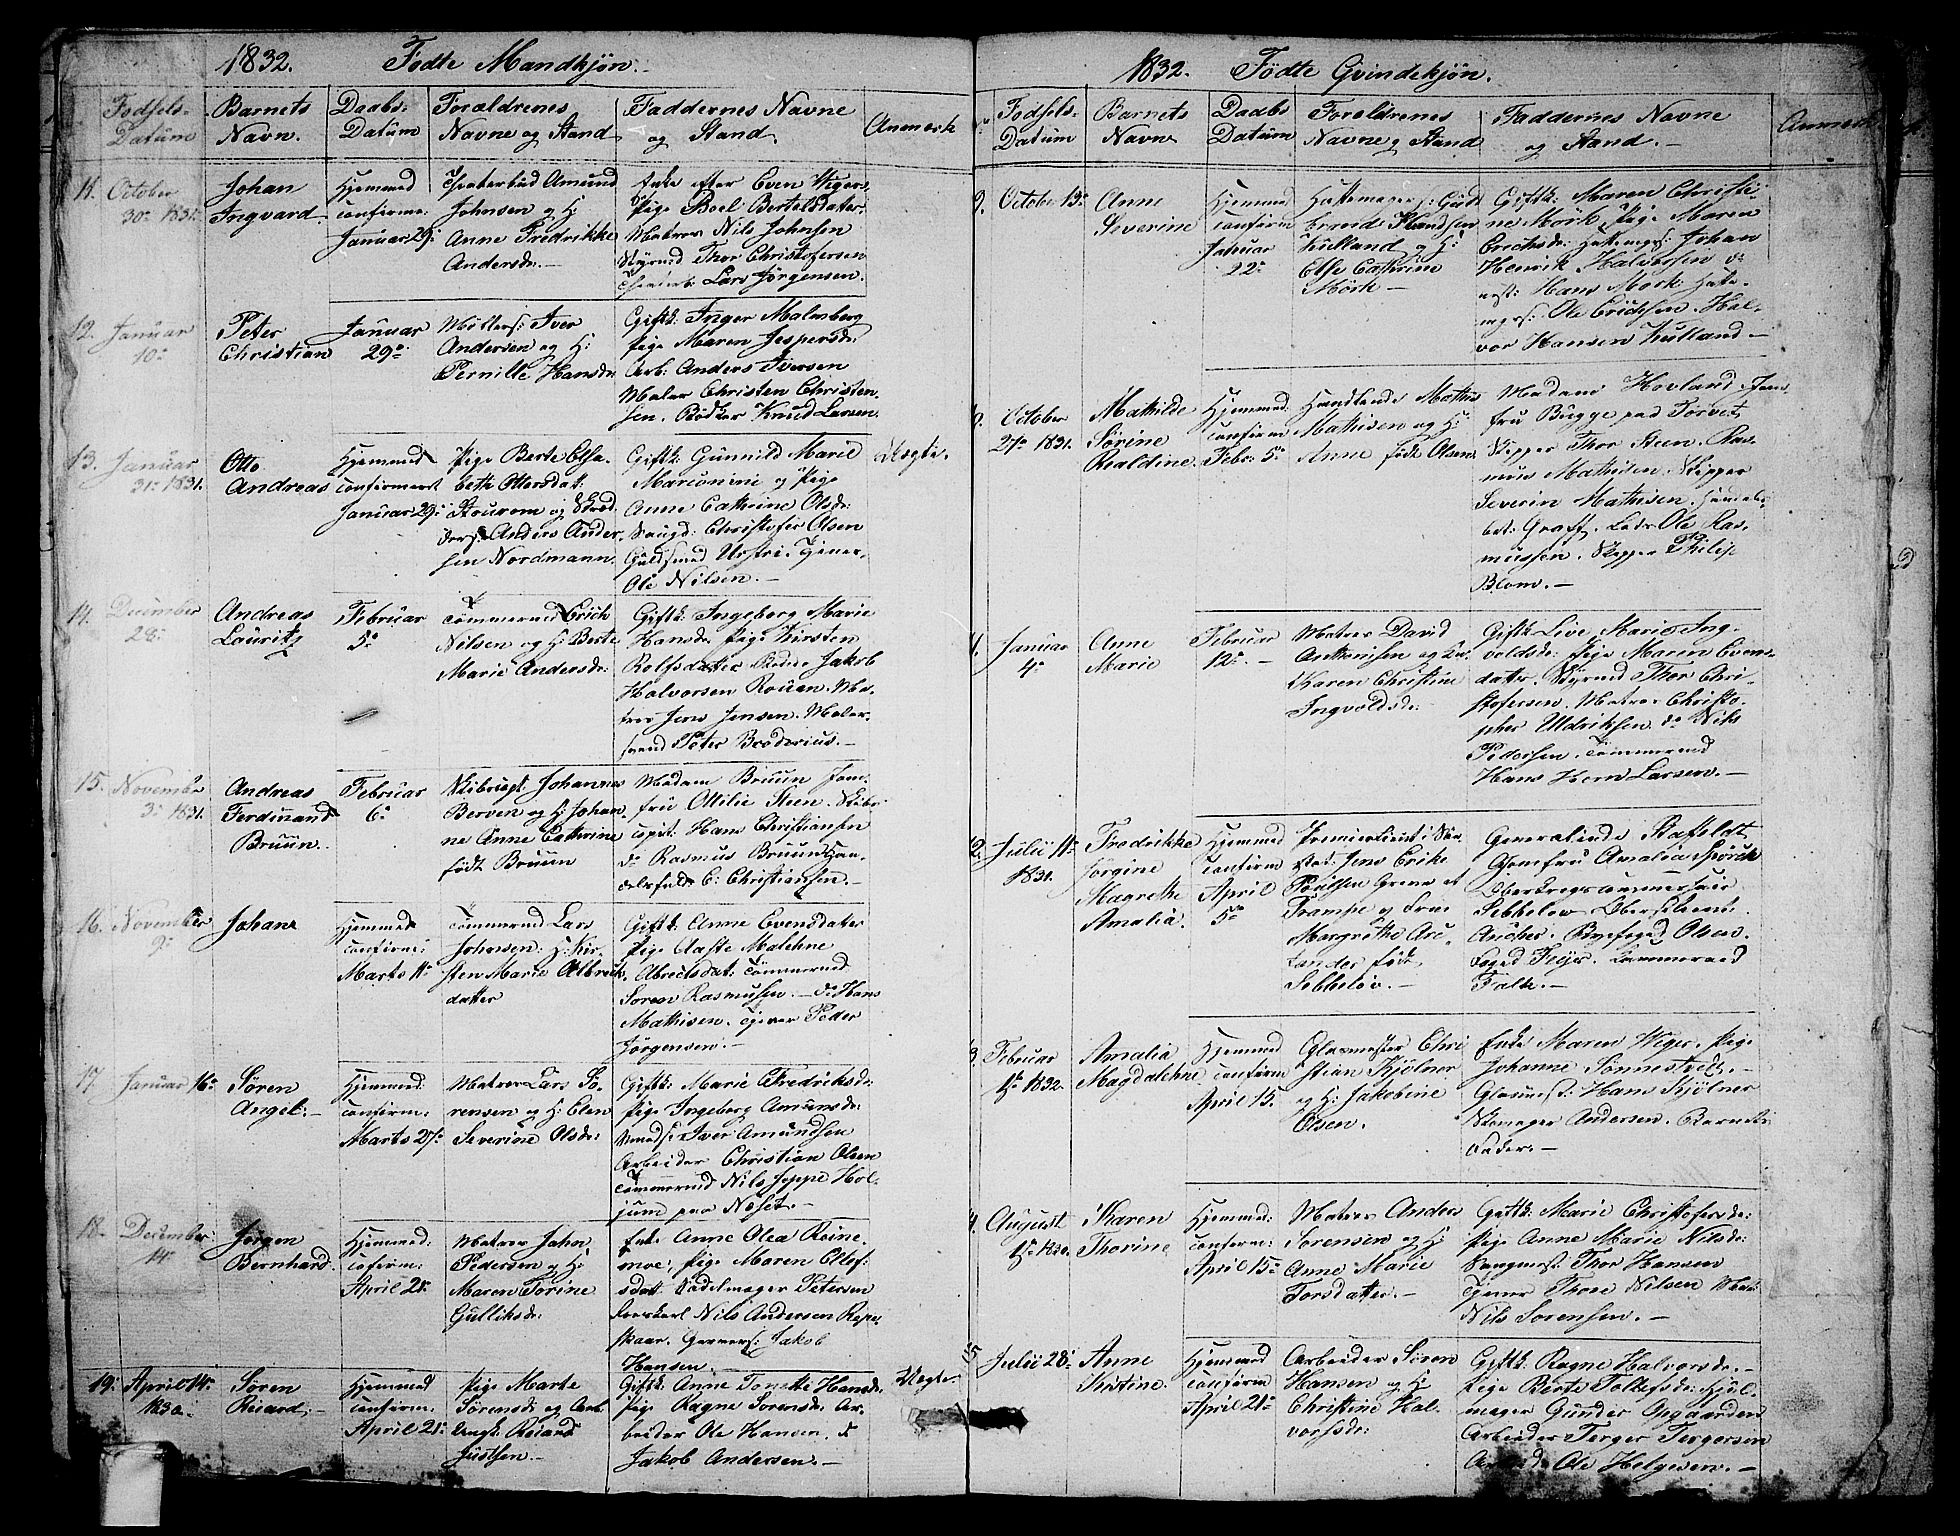 1832. Fødte Mandkjøn.
Fødsels-
Datum
Barnets
Navn.
Daabs-
Datum
Forældrenes
Navne og Stand
Faddernes Navne
og Stand.
Anmerk
11. October
30te 1831.
Johan
Ingvard.
Hjemmed
confirme.
Januar 29:
Theaterbud Amund
Johnsen og H:
Anne Fredrikke
Andersdr.
Enke efter Even Wigers.
Pige Boel Bertelsdater
Matros Nils Johnsen
Styrmd Thor Christofersen
Lars Jörgensen.
12. Januar
10:
Peter
Christian
Januar
29:
Møllers: Iver
Andersen og H:
Pernille Hansdr:
Giftk: Inger Malmberg
Pige Maren Jespersdr:
Arb: Anders Iversen
Maler Christen Christen-
sen. Bödker Knud Larsen
13. Januar
31: 1831.
Otto
Andreas
Hjemmed
confirmeret
Januar 29:
Pige Berte Elsa-
beth Ottersdat:
Stourom og Skræd
ders: Anders Ander-
sen Nordmann.
Giftk: Gunnild Marie
Marconini og Pige
Anne Cathrine Olsdr:
Christofer Olsen
Guldsmed Urstri. Tjener
Ole Nilsen.
Uægte.
14. December
28:
Andreas
Lauritz
Februar
5:
Tömmermd Erich
Nilsen og H: Berte
Marie Andersdr:
Giftk: Ingeberg Marie
Hansdr: Pige Kirsten
Rolfsdatter Jakob
Halvorsen Rouen. Ma-
tros Jens Jensen. Maler-
svend Peter Broderius.
15. November
3: 1831.
Andreas
Ferdinand
Bruun.
Februar
6:
Skibscapt Johannes
Berven og H: Johan-
ne Anne Cathrine
født Bruun
Madam Bruun Jom-
fru Ottilie Steen. Skibs
capit: Hans Christiansen
do Rasmus Bruun Han-
delsfuld: C: Christiansen.
16. November
9:
Johan
Hjemmed
confirm:
Marts 11:
Tömmermd Lars
Johnsen: H: Kir-
sten Marie Albreck
datter
Giftk: Anne Evensdater
Pige Aaste Malehne
Abreckdat: Tömmermd
Soren Rasmusen. do Hans
Mathisen. Tjener Peder
Jörgensen.
17 Januar 16:
Sören
Angel.
Hjemmed
confirm:
Marts 27:
Matros Lars Sö-
rensen og H: Elen
Severine Olsdr:
Giftk: Marie Fredriksdr:
Pige Ingeberg Amunsdr:
Smeds: Iver Amundsen
Arbeider Christian Olsen
Tömmermd Nils Jeppe Hol-
jum paa Neset.
18. December
14:
Jörgen
Bernhard.
Hjemmed:
cofirm:
April 21:
Matros John
Pedersen og H:
Maren Torine
Gulliksdr:
Enke Anne Olea Reine-
moe, Pige Maren Ollef-
sdat Sadelmager Petersen
Nils Andersen Repe-
skaar. Jakob
Hansen.
19: April 14:
1830.
Sören
Reiard.
Hjemmed
confirm:
April 21:
Pige Marte
Sörensdr og Arb:
Reiard
Justsen
Giftk: Anne Tonette Hansdr:
Pige Ragne Sorensdr: Ar-
beider Ole Hansen. do
Jakob Andersen.
Uægte
1832. Födte Qvindekjön.
Fodsels-
Datum
Barnets
Navn
Daabs
Datum
Foreldrenes
Navne og Stand
Faddernes Navne
og Stand.
Anmerk
9. October 13:
Anne
Severine
Hjemmed
confirm
Januar
22:
Hattemagers: Gud
brand Handsen
Kulland og H:
Else Cathrine
Mörk
Giftk: Maren Christi-
ne Mörk Pige Maren
Erichsdr: Hattemgs: Johan
Henrik Halvorsen do
Hans Mörk Hatte-
mgs: Ole Erichsen. Hal-
vor Hansen Kulland
October
27: 1831.
Mathilde
Sörine
Realdine.
Hjemmed
confirm
Febr: 5:
Handlende Mathis
Mathisen og H:
Anne född Olsen
Madam Hovland Jom-
fru Bugge paa Torvet,
Skipper Thor Steen. Ras-
mus Mathisen. Skipper
Severin Mathisen. Handels-
bet: Graff. Lods Ole Ras-
mussen. Skipper Philip
Blom.
Januar
4:
Anne
Marie
Februar
12:
Matros David
Anthonisen og
Karen Christine
Ingvoldsdr:
Giftk: Live Marie Ing-
voldsdr: Pige Maren Evens-
dater. Styrmd Thor Chri-
stofersen. Matros Christo-
pher Uldriksen do Nils
Pedersen. Tömmermd
Hans Herm Larsen.
Julii 11:
1831.
Fredrikke
Jörgine
Magrethe
Amalia.
Hjemmed
confirm
April
5:
Premierlieut:
Jens Erike
Poulsen Greve af
Trampe og Frue
Margrethe
född
Sebbelöv.
Generalinde Stafeldt
Jomfru Amalia Spörck
Oberkrigscommersair
Sebbelow Oberstlieut:
Aucher. Byefoged Olsen.
Foged Feijer. Cammerraad
Falde.
Februar
1: 1832.
Amalia
Magdalehne
Hjemmed
confirm
April 15.
Glasmester Chri
stian Kjölner
og H: Jakobine
Olsen.
Enke Maren Wiger. Pige
Johanne Sönnestvedt.
Glasmest: Hans Kjölner
Skomager Andersen. Barnets
Fader.
August
15: 1830.
Karen
Thorine
Hjemmed:
confirm:
April 15:
Matros Anders
Sorensen og H:
Anne Marie
Torsdatter.
Giftk: Marie Christofersdr:
Pige Anne Marie Nilsdr:
Thor Hansen
Tjener Thore Nilsen
Nils Sorensen.
Julii 28:
Anne
Kistine.
Hjemmed
confirm
April 21:
Arbeider Sören
Hansen og H:
Christine Hal-
vorsdr:
Giftk: Ragne Halvorsdr:
Pige Berte Tollefsdr: Hjul-
mager Gunder Opgaarden
Arbeider Terger Tergersen
Ole Helgesen.